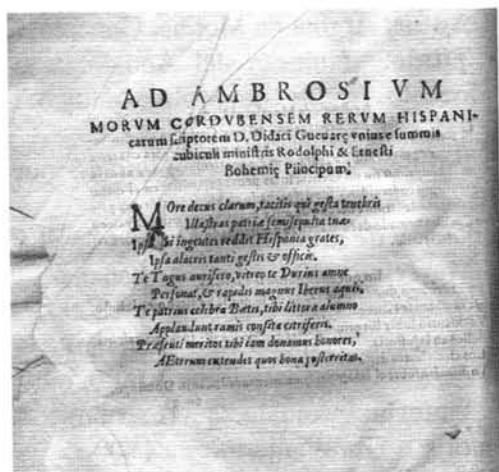 AD AMBROSIVM
MORVM CORDVBENSEM RERVM HISPANI-
carum scriptorem D. Didaci Gueuarę vnius e summis
cubiculi ministris Rodolphi & Ernesti
Bohemię Principum.
MOre decus clarum, tacitis qui gesta tenebris
Illustras patriæ semisepulta tuæ
Ipsa tibi ingentes reddit Hispania grates,
Ipsa alacris tanti gestit & officiis.
Te Tagus aurifero, vitreo te Durius amne
Personat, & rapidis magnus Iberus aquis.
Te patrius celebrat Bætis, tibi littora alumno
Applaudunt ramis consita citriferis.
Præsenti meritos tibi iam donamus honores,
AEternum extendet quos bona posteritas.